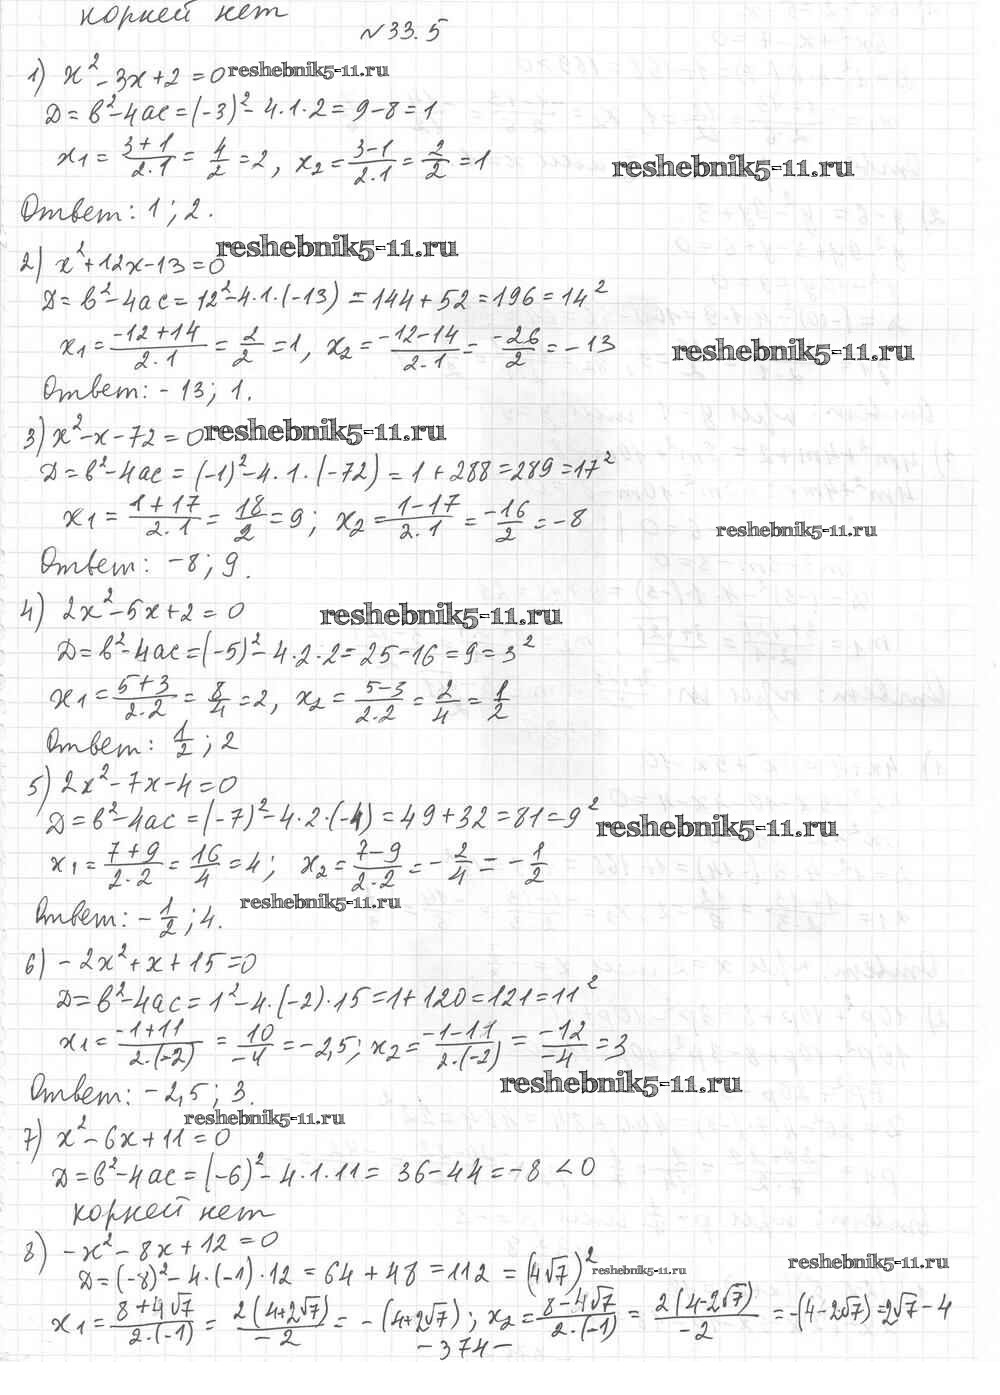 корней нет
№33.5
1) x² - 3x + 2 = 0 reshebnik5-11.ru
Д = b² - 4ac = (-3)² - 4·1·2 = 9 - 8 = 1
x₁ = (3+1)/(2·1) = 4/2 = 2, x₂ = (3-1)/(2·1) = 2/2 = 1 reshebnik5-11.ru
Ответ: 1; 2.
reshebnik5-11.ru
2) x² + 12x - 13 = 0
Д = b² - 4ac = 12² - 4·1·(-13) = 144 + 52 = 196 = 14²
x₁ = (-12+14)/(2·1) = 2/2 = 1, x₂ = (-12-14)/(2·1) = -26/2 = -13 reshebnik5-11.ru
Ответ: -13; 1.
3) x² - x - 72 = 0 reshebnik5-11.ru
Д = b² - 4ac = (-1)² - 4·1·(-72) = 1 + 288 = 289 = 17²
x₁ = (1+17)/(2·1) = 18/2 = 9; x₂ = (1-17)/(2·1) = -16/2 = -8 reshebnik5-11.ru
Ответ: -8; 9.
4) 2x² - 5x + 2 = 0 reshebnik5-11.ru
Д = b² - 4ac = (-5)² - 4·2·2 = 25 - 16 = 9 = 3²
x₁ = (5+3)/(2·2) = 8/4 = 2, x₂ = (5-3)/(2·2) = 2/4 = 1/2
Ответ: 1/2; 2
5) 2x² - 7x - 4 = 0
Д = b² - 4ac = (-7)² - 4·2·(-4) = 49 + 32 = 81 = 9² reshebnik5-11.ru
x₁ = (7+9)/(2·2) = 16/4 = 4; x₂ = (7-9)/(2·2) = -2/4 = -1/2
Ответ: -1/2; 4. reshebnik5-11.ru
6) -2x² + x + 15 = 0
Д = b² - 4ac = 1² - 4·(-2)·15 = 1 + 120 = 121 = 11²
x₁ = (-1+11)/(2·(-2)) = 10/-4 = -2,5; x₂ = (-1-11)/(2·(-2)) = -12/-4 = 3
Ответ: -2,5; 3. reshebnik5-11.ru
reshebnik5-11.ru
7) x² - 6x + 11 = 0
Д = b² - 4ac = (-6)² - 4·1·11 = 36 - 44 = -8 < 0
корней нет
8) -x² - 8x + 12 = 0
Д = (-8)² - 4·(-1)·12 = 64 + 48 = 112 = (4√7)² reshebnik5-11.ru reshebnik5-11.ru
x₁ = (8+4√7)/(2·(-1)) = 2(4+2√7)/-2 = -(4+2√7); x₂ = (8-4√7)/(2·(-1)) = 2(4-2√7)/-2 = -(4-2√7) = 2√7 - 4
-374-